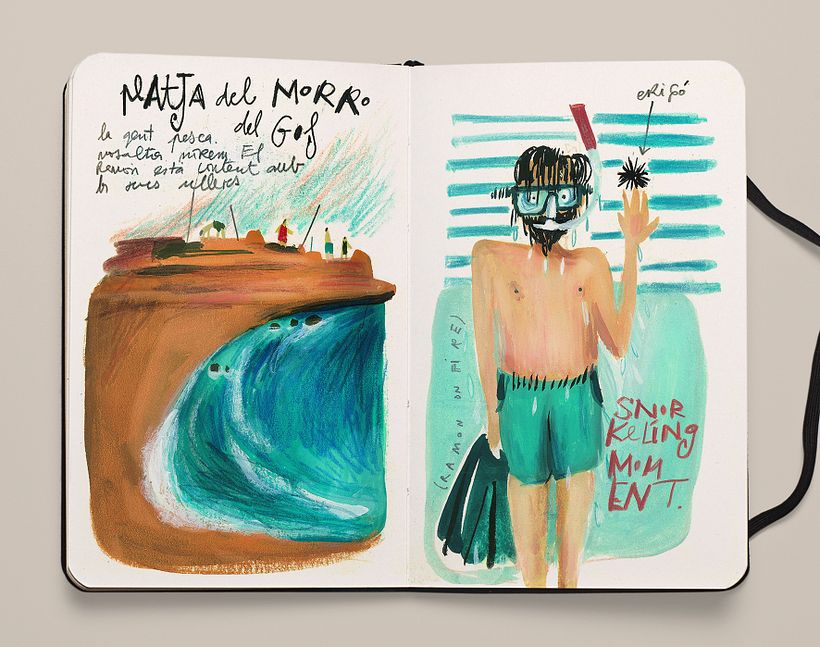 PlAtJA del MoRRo
del GoS
la gent pesca.
nosaltres mirem. El
Ramon està content amb
les seves ulleres
eRiçó
(RAMON ON FiRE)
SNoR
KeLiNg
MoM
ENT.